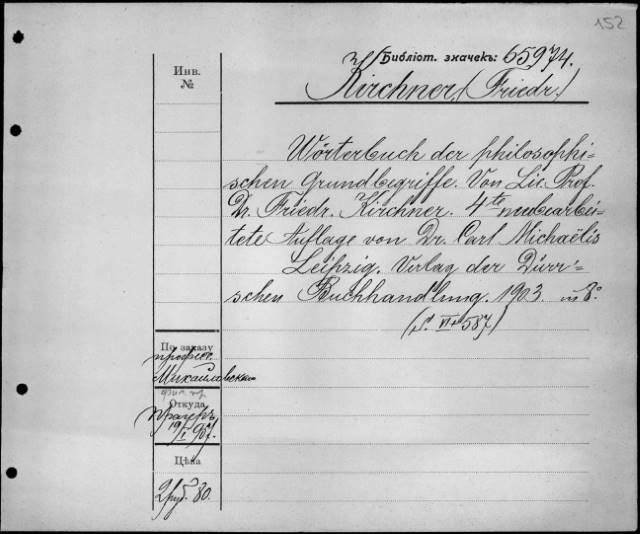 152
Библіот. значекъ: 65974.
Инв.
№
Kirchner, (Friedr.)
Wörterbuch der philosophi-
schen Grundbegriffe. Von Lic. Prof.
Dr. Friedr. Kirchner. 4te neubearbei-
tete Auflage von Dr. Carl Michaëlis
Leipzig. Verlag der Dürr'-
schen Buchhandlung. 1903. in 8°
(S. VI+587)
По заказу
профес.
Михайловскаго
Откуда
19/I 907.
Цѣна
2 руб. 80.